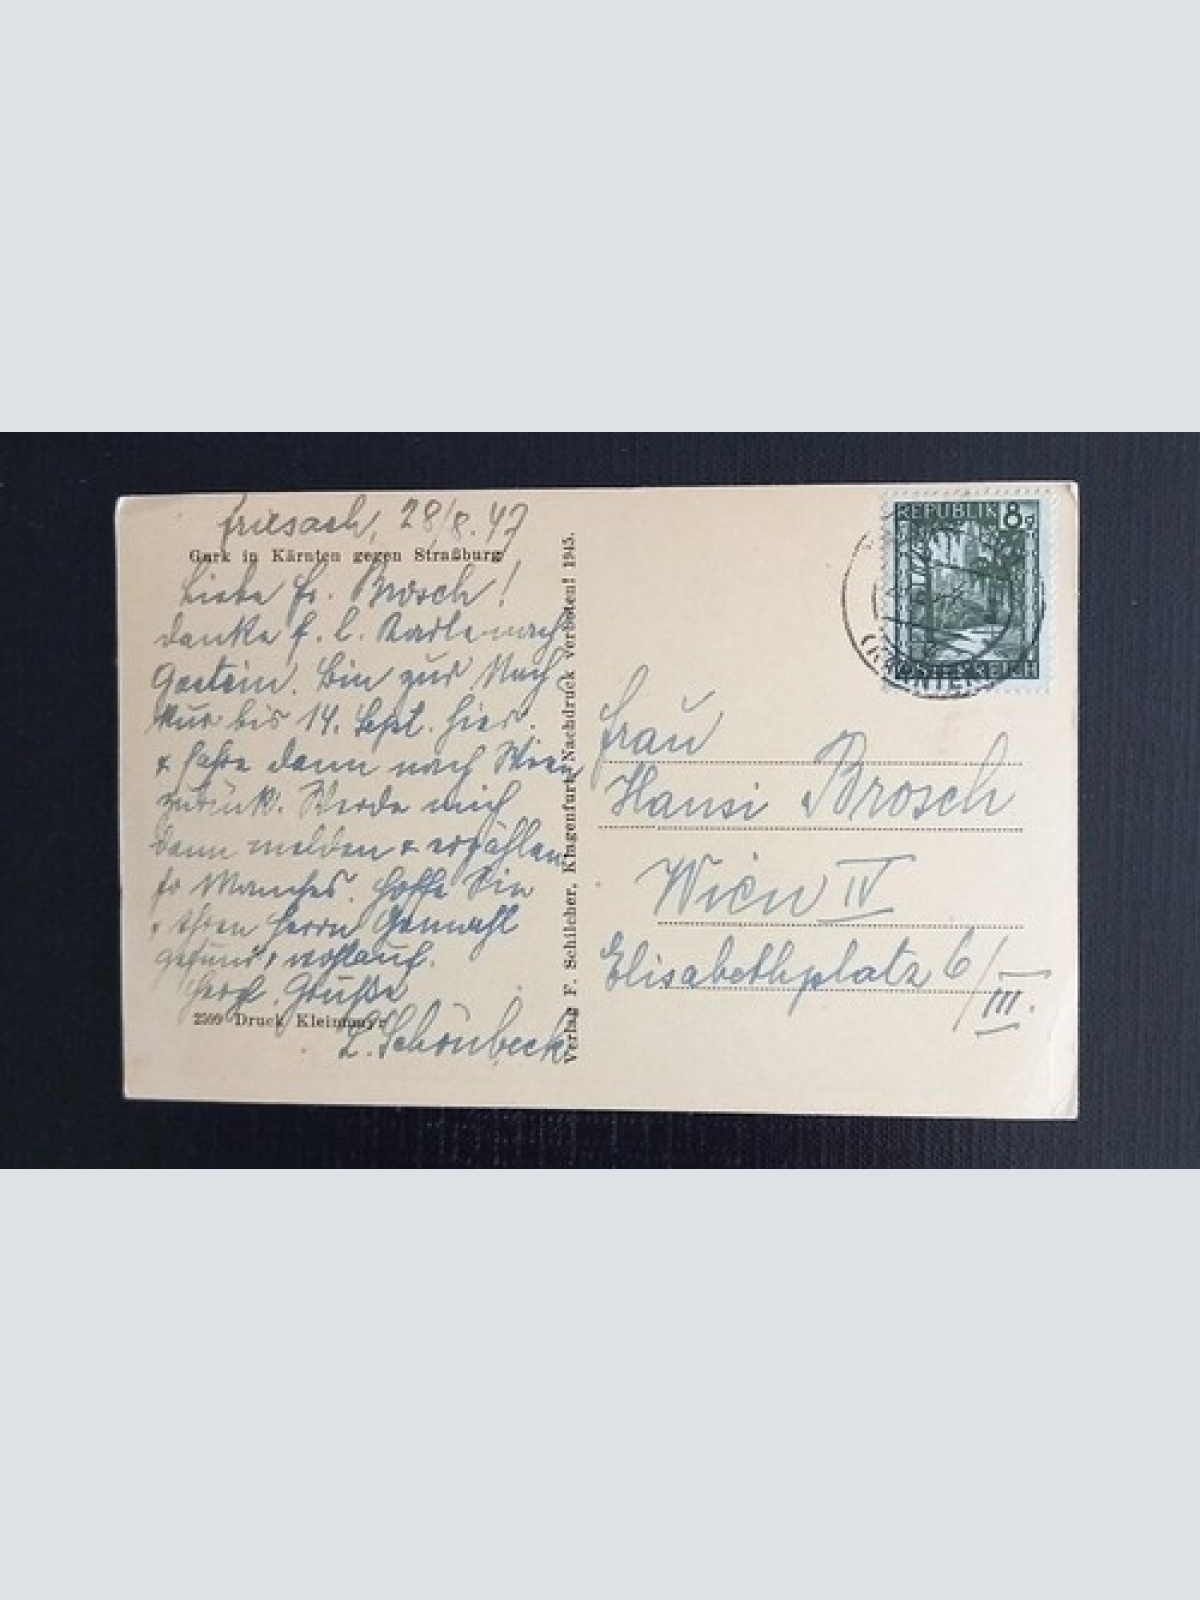 Friesach, 28/8.47
Gurk in Kärnten gegen Straßburg
Liebe Fr. Brosch!
Danke f. l. Karte nach
Gastein. Bin zur Nach-
kur bis 14. Sept. hier.
& fahre dann nach Wien
zurück. Werde mich
dann melden & erzählen
so Manches. Hoffe Sie
& Ihren Herrn Gemahl
gesund & wohlauf.
Herzl. Grüße
2599 Druck Kleinmayr
L. Schönbeck
Verlag F. Schilcher, Klagenfurt. Nachdruck verboten! 1945.
REPUBLIK 8g
ÖSTERREICH
(KÄRNTEN)
Frau
Hansi Brosch
Wien IV
Elisabethplatz 6/III.